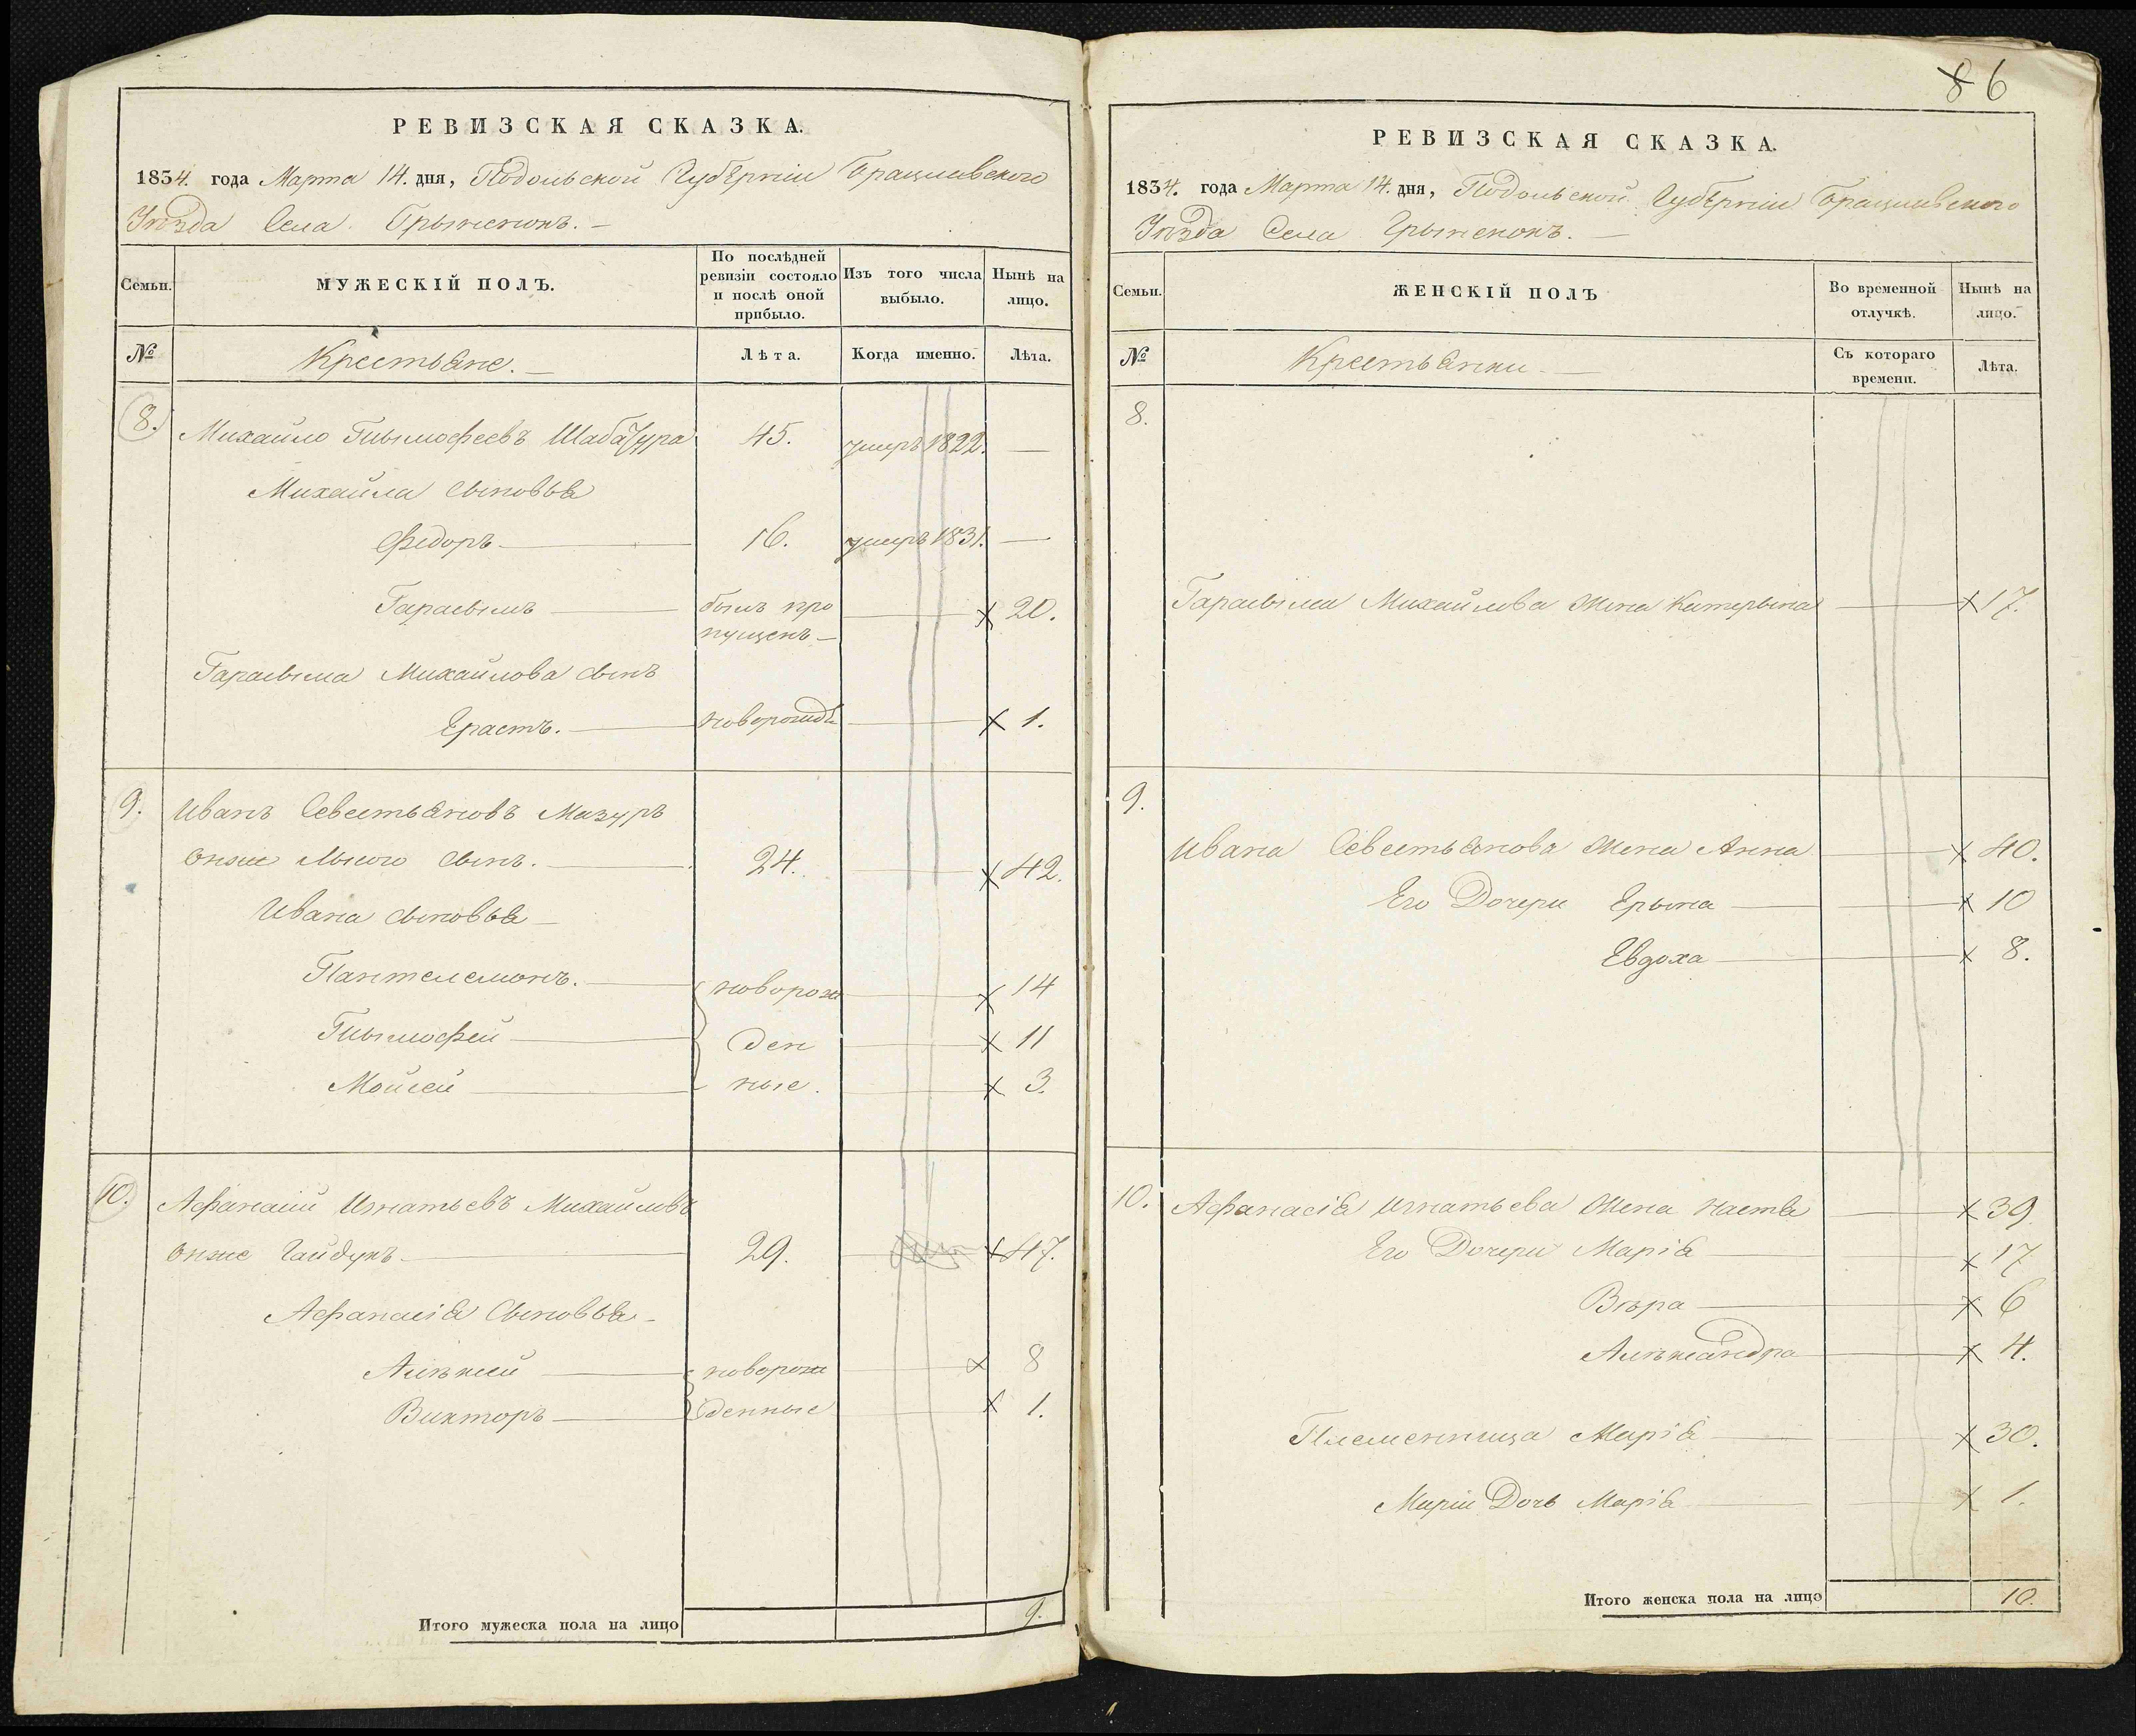 РЕВИЗСКАЯ СКАЗКА.
1834. года Марта 14. дня, Подольской Губерніи Брацлавского
Уѣзда Села Грыженокъ. —
Семьи.
МУЖЕСКІЙ ПОЛЪ.
По послѣдней
ревизіи состояло
и послѣ оной
прибыло.
Изъ того числа
выбыло.
Нынѣ на
лицо.
№
Крестьяне. —
Лѣта.
Когда именно.
Лѣта.
8. Михайло Тымофеевъ Шабатура 45. умеръ 1822. —
Михайла сыновья
Федоръ — 16. умеръ 1831. —
Гарасымъ — былъ про — х 20.
пущенъ —
Гарасыма Михайлова сынъ
Ерастъ. — новорожд. — х 1.
9. Иванъ Севестьяновъ Мазуръ
онже Лысого сынъ. — 24. — х 42.
Ивана сыновья —
Пантелемонъ. — новорож — х 14
Тымофей — ден — х 11
Мойсей — ные. — х 3.
10. Афанасій Игнатьевъ Михайловъ
онже Гайдукъ. — 29. — х 47.
Афанасія Сыновья —
Алѣксей — новорож — х 8
Викторъ — денные — х 1.
Итого мужеска пола на лицо 9.
86
РЕВИЗСКАЯ СКАЗКА.
1834. года Марта 14. дня, Подольской Губерніи Брацлавского
Уѣзда Села Грыженокъ. —
Семьи.
ЖЕНСКІЙ ПОЛЪ
Во временной
отлучкѣ.
Нынѣ на
лицо.
№
Крестьянки. —
Съ котораго
времени.
Лѣта.
8.
Гарасыма Михайлова жена Катерына — х 17.
9.
Ивана Севестьянова жена Анна — х 40.
Его Дочери Ерына — х 10
Евдоха — х 8.
10. Афанасія Игнатьева жена Настя — х 39.
Его Дочери Марія — х 17
Вѣра — х 6
Алѣксандра — х 4.
Племенница Марія — х 30.
Маріи Дочь Марія — х 1.
Итого женска пола на лицо 10.